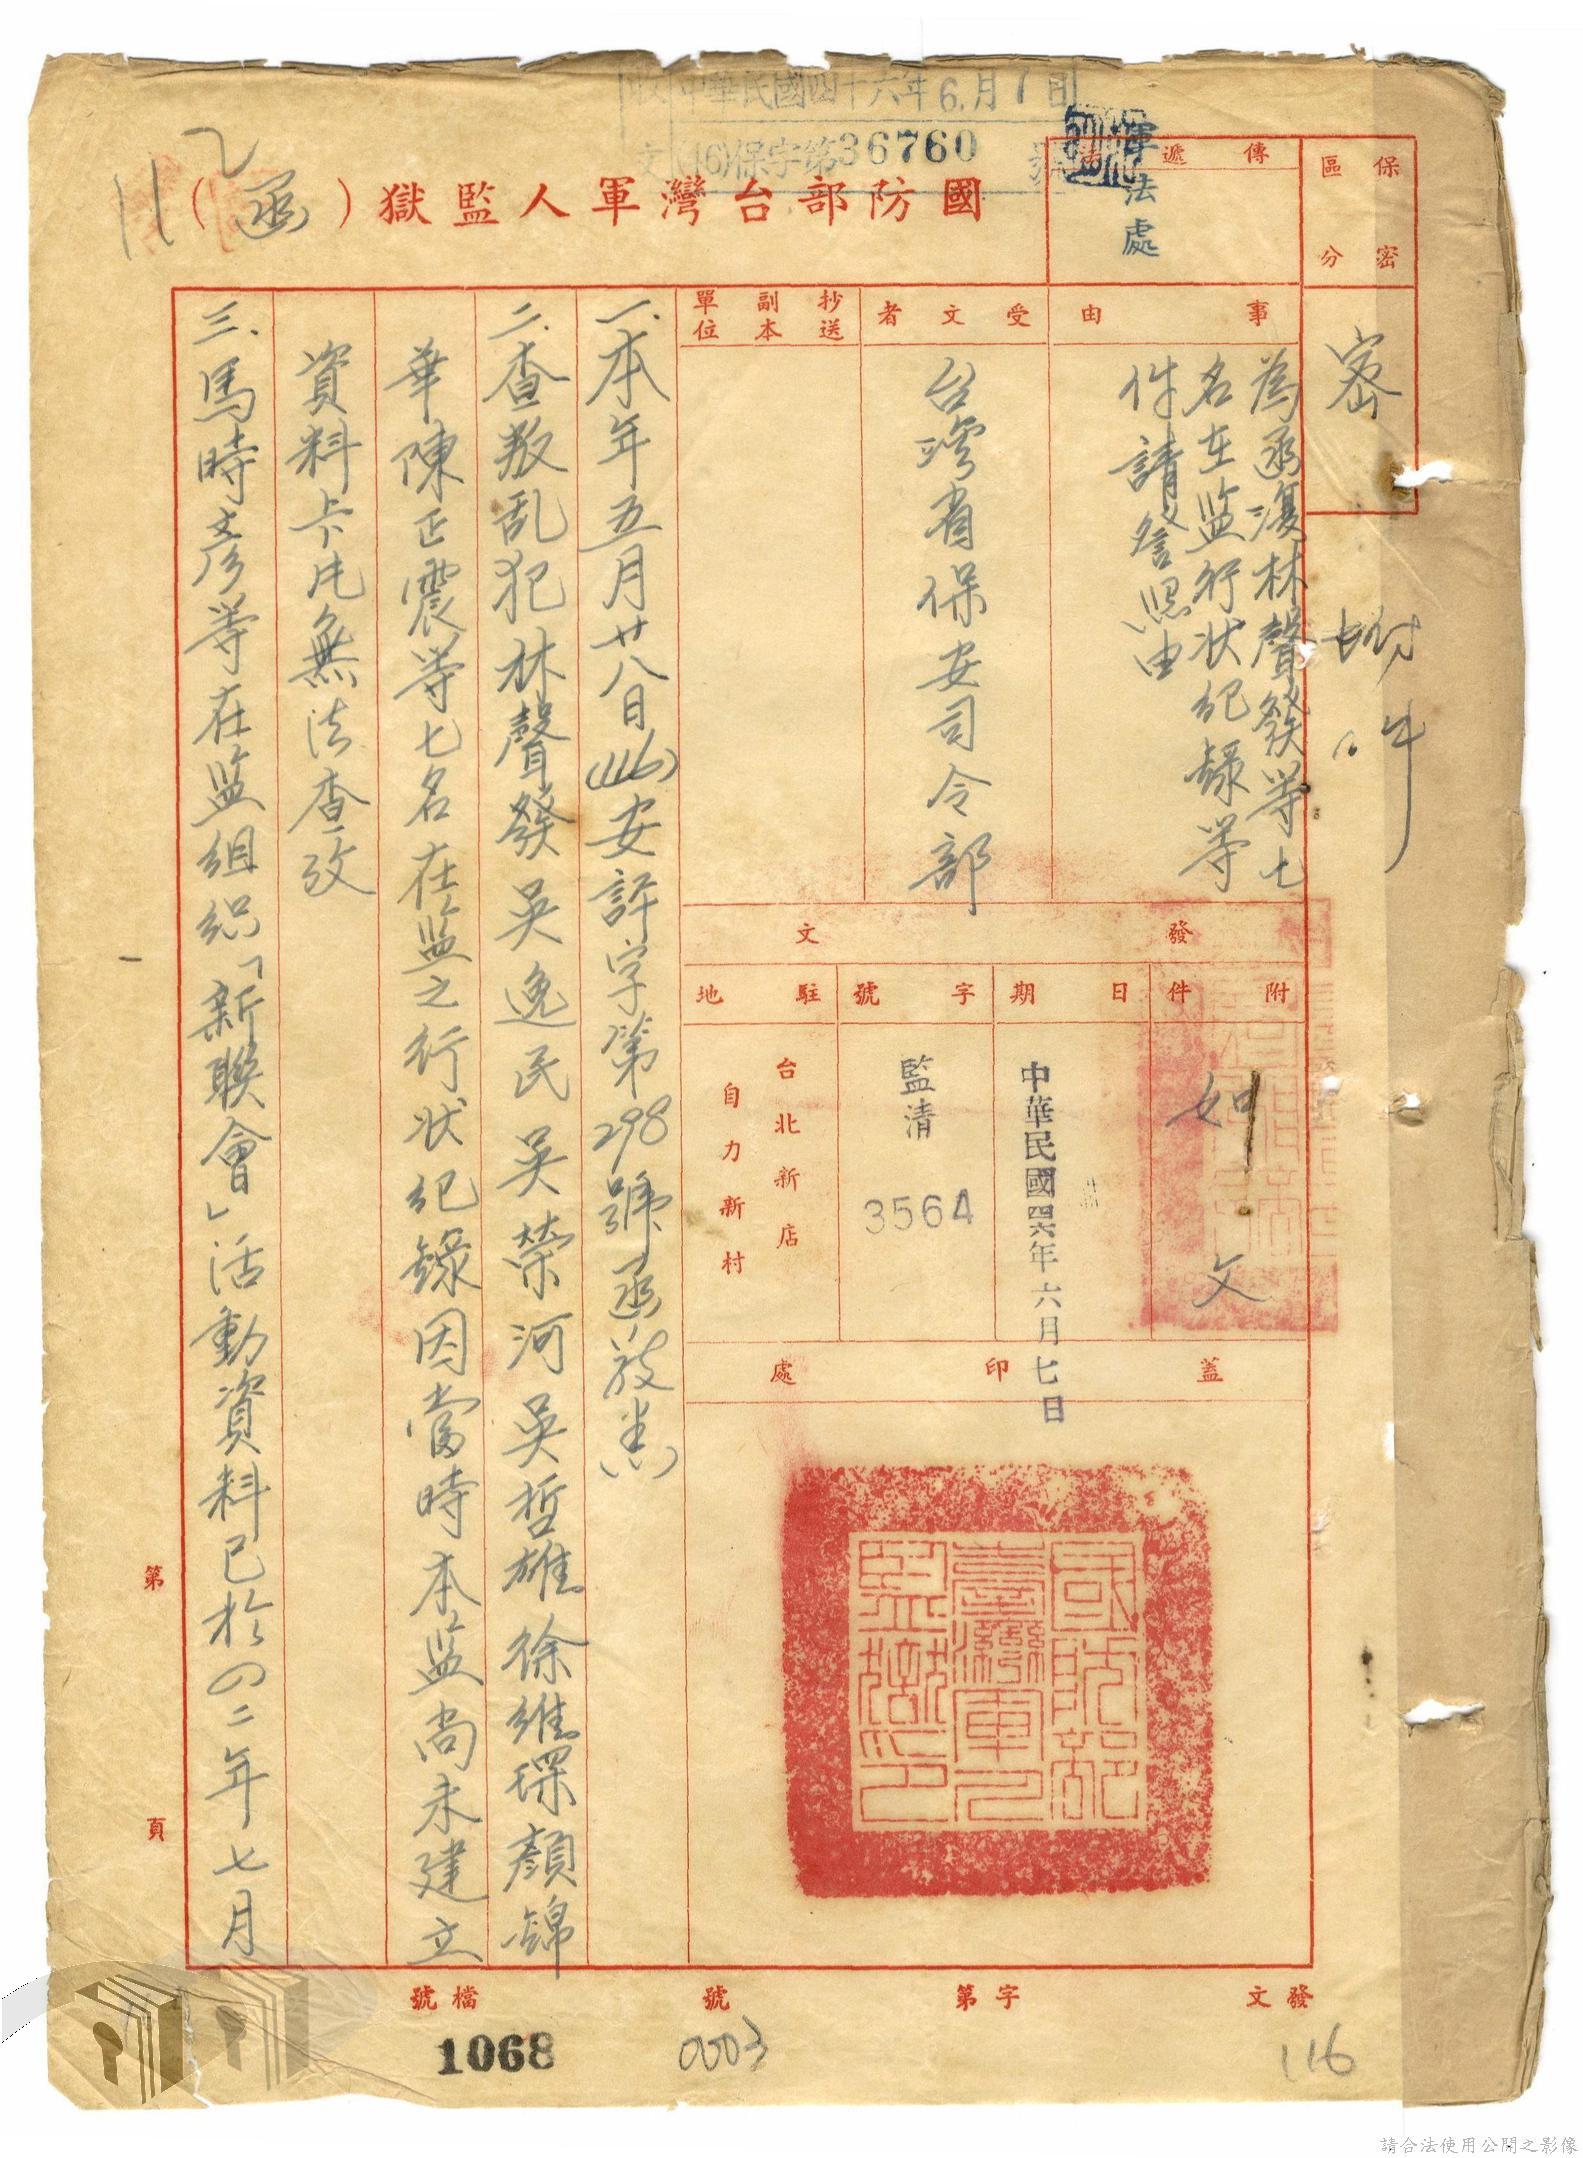 中華民國四十六年6月7日
(46)保字第36760號
國防部台灣軍人監獄(函)
保密區分
密
附件
傳遞
軍法處
事由
為函復林聲發等七
名在監行狀紀錄等
件請詧照由
受文者
台灣省保安司令部
抄送副本單位
發文
附件
如文
日期
中華民國四六年六月七日
字號
監清
3564
駐地
台北新店
自力新村
蓋印處
國防部
臺灣軍人
監獄印
一、本年五月廿八日(46)安訴字第298號函敬悉
二、查叛乱犯林聲發吳逸民吳榮河吳哲雄徐維琛顏錦
華陳正震等七名在監之行状纪錄因當時本監尚未建立
資料卡片無法查攷
三、馬時彥等在监組织「新聯會」活動資料已於四二年七月
第 頁
發文 字第 號
檔號
1068
0003
116
請合法使用公開之影像